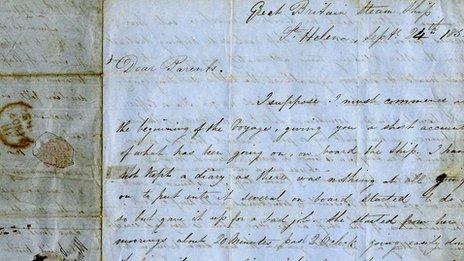 Great Britain Steam Ship
St Helena, Septr 24th 185
Dear Parents.
I suppose I must commence
the beginning of the Voyage, giving you a short account
of what has been going on, on board the Ship. I have
not kept a diary as there was nothing at all going
on to put into it several on board started to do
so but gave it up for a bad job. We started from
mornings about 20 Minutes past 2 Oclock going easily